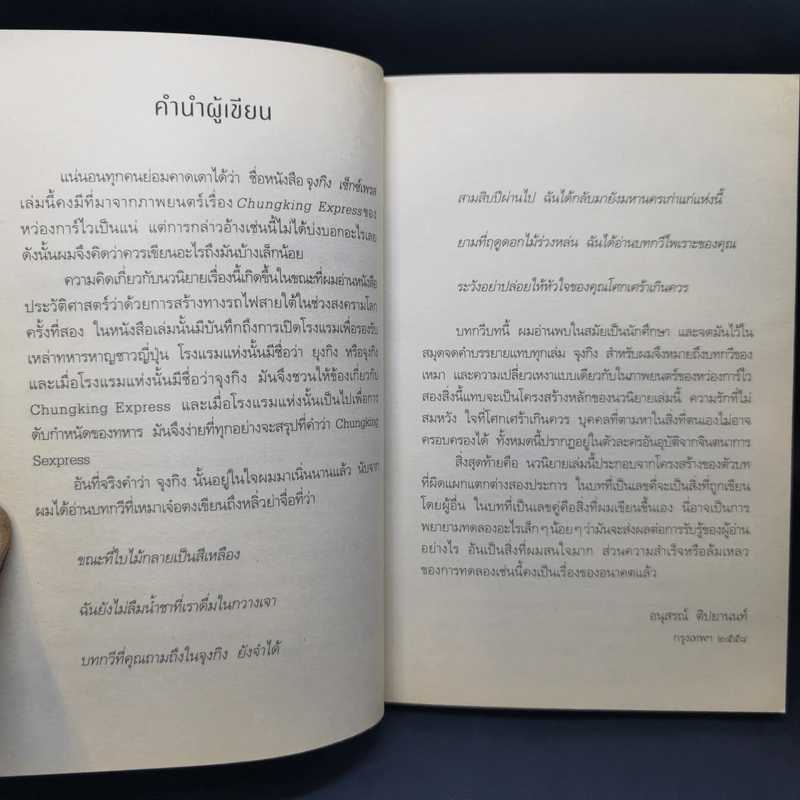 คำนำผู้เขียน
แน่นอนทุกคนย่อมคาดเดาได้ว่า ชื่อหนังสือ จุงกิง เซ็กซ์เพรส
เล่มนี้คงมีที่มาจากภาพยนตร์เรื่อง Chungking Express ของ
หว่องการ์ไวเป็นแน่ แต่การกล่าวอ้างเช่นนี้ไม่ได้บ่งบอกอะไรเลย
ดังนั้นผมจึงคิดว่าควรเขียนอะไรถึงมันบ้างเล็กน้อย
ความคิดเกี่ยวกับนวนิยายเรื่องนี้เกิดขึ้นในขณะที่ผมอ่านหนังสือ
ประวัติศาสตร์ว่าด้วยการสร้างทางรถไฟสายใต้ในช่วงสงครามโลก
ครั้งที่สอง ในหนังสือเล่มนั้นมีบันทึกถึงการเปิดโรงแรมเพื่อรองรับ
เหล่าทหารหาญชาวญี่ปุ่น โรงแรมแห่งนั้นมีชื่อว่า ยุงกิง หรือจุงกิง
และเมื่อโรงแรมแห่งนั้นมีชื่อว่าจุงกิง มันจึงชวนให้ข้องเกี่ยวกับ
Chungking Express และเมื่อโรงแรมแห่งนั้นเป็นไปเพื่อการ
ดับกำหนัดของทหาร มันจึงง่ายที่ทุกอย่างจะสรุปที่คำว่า Chungking
Sexpress
อันที่จริงคำว่า จุงกิง นั้นอยู่ในใจผมมาเนิ่นนานแล้ว นับจาก
ผมได้อ่านบทกวีที่เหมาเจ๋อตงเขียนถึงหลิ่วย่าจื่อที่ว่า
ขณะที่ใบไม้กลายเป็นสีเหลือง
ฉันยังไม่ลืมน้ำชาที่เราดื่มในกวางเจา
บทกวีที่คุณถามถึงในจุงกิง ยังจำได้
สามสิบปีผ่านไป ฉันได้กลับมายังมหานครเก่าแก่แห่งนี้
ยามที่ฤดูดอกไม้ร่วงหล่น ฉันได้อ่านบทกวีไพเราะของคุณ
ระวังอย่าปล่อยให้หัวใจของคุณโศกเศร้าเกินควร
บทกวีบทนี้ ผมอ่านพบในสมัยเป็นนักศึกษา และจดมันไว้ใน
สมุดจดคำบรรยายแทบทุกเล่ม จุงกิง สำหรับผมจึงหมายถึงบทกวีของ
เหมา และความเปลี่ยวเหงาแบบเดียวกับในภาพยนตร์ของหว่องการ์ไว
สองสิ่งนี้แทบจะเป็นโครงสร้างหลักของนวนิยายเล่มนี้ ความรักที่ไม่
สมหวัง ใจที่โศกเศร้าเกินควร บุคคลที่ตามหาในสิ่งที่ตนเองไม่อาจ
ครอบครองได้ ทั้งหมดนี้ปรากฏอยู่ในตัวละครอันอุบัติจากจินตนาการ
สิ่งสุดท้ายคือ นวนิยายเล่มนี้ประกอบจากโครงสร้างของตัวบท
ที่ผิดแผกแตกต่างสองประการ ในบทที่เป็นเลขคี่จะเป็นสิ่งที่ถูกเขียน
โดยผู้อื่น ในบทที่เป็นเลขคู่คือสิ่งที่ผมเขียนขึ้นเอง นี่อาจเป็นการ
พยายามทดลองอะไรเล็กๆ น้อยๆ ว่ามันจะส่งผลต่อการรับรู้ของผู้อ่าน
อย่างไร อันเป็นสิ่งที่ผมสนใจมาก ส่วนความสำเร็จหรือล้มเหลว
ของการทดลองเช่นนี้คงเป็นเรื่องของอนาคตแล้ว
อนุสรณ์ ติปยานนท์
กรุงเทพฯ ๒๕๕๘